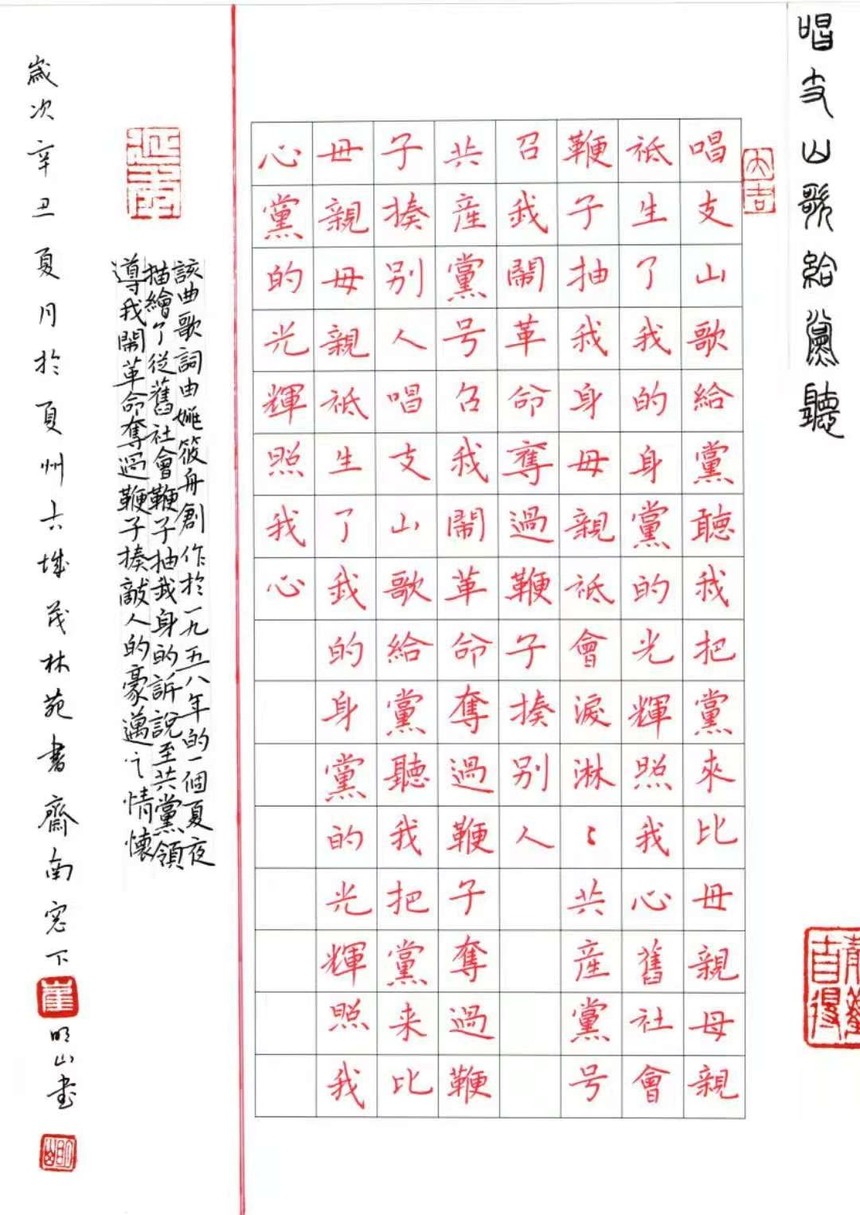 唱支山歌給黨聽
大吉
唱支山歌給黨聽我把黨來比母親母親
祗生了我的身黨的光輝照我心舊社會
鞭子抽我身母親祗會淚淋〻共産黨号
召我鬧革命奪過鞭子揍别人
共産黨号召我鬧革命奪過鞭子奪過鞭
子揍别人唱支山歌給黨聽我把黨来比
母親母親祗生了我的身黨的光輝照我
心黨的光輝照我心
該曲歌詞由姚筱舟創作於一九五八年的一個夏夜
描繪了從舊社會鞭子抽我身的訴說至共黨領
導我鬧革命奪過鞭子揍敵人的豪邁之情懷
歲次辛丑夏月於夏州古城茂林苑書齋南窓下
崔
明山書